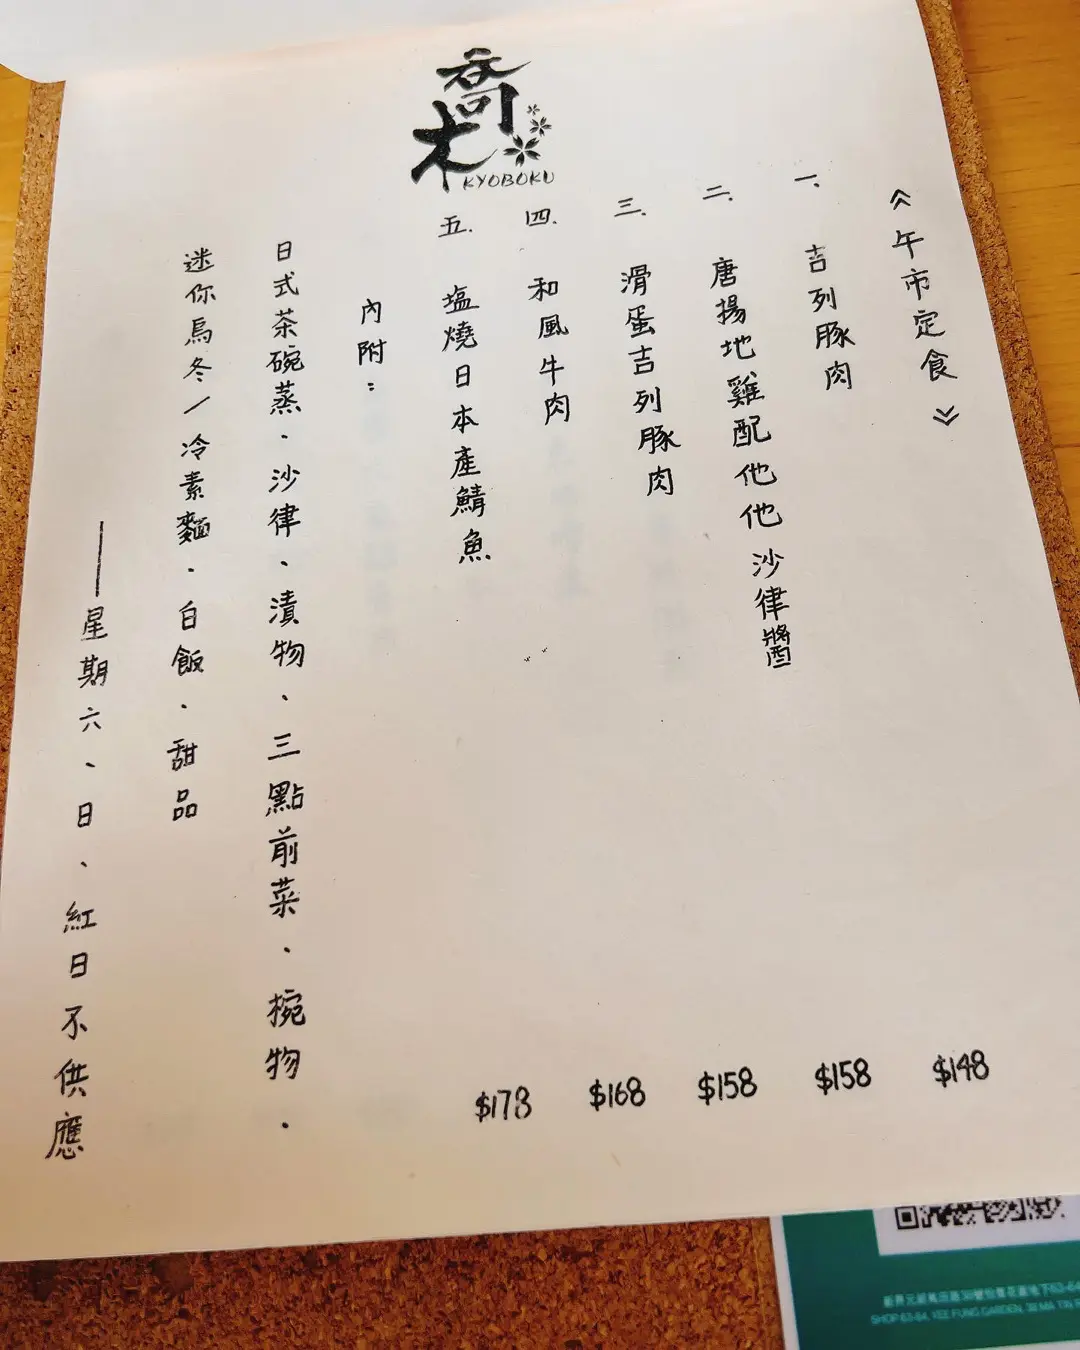 喬木
KYOBOKU
《午市定食》
一、吉列豚肉 $148
二、唐揚地雞配他他沙律醬 $158
三、滑蛋吉列豚肉 $158
四、和風牛肉 $168
五、塩燒日本產鯖魚 $178
內附：
日式茶碗蒸、沙律、漬物、三點前菜、椀物、
迷你烏冬/冷素麵、白飯、甜品
——星期六、日、紅日不供應
SHOP 63-64, YEE FUNG GARDEN, 38 MA TIN